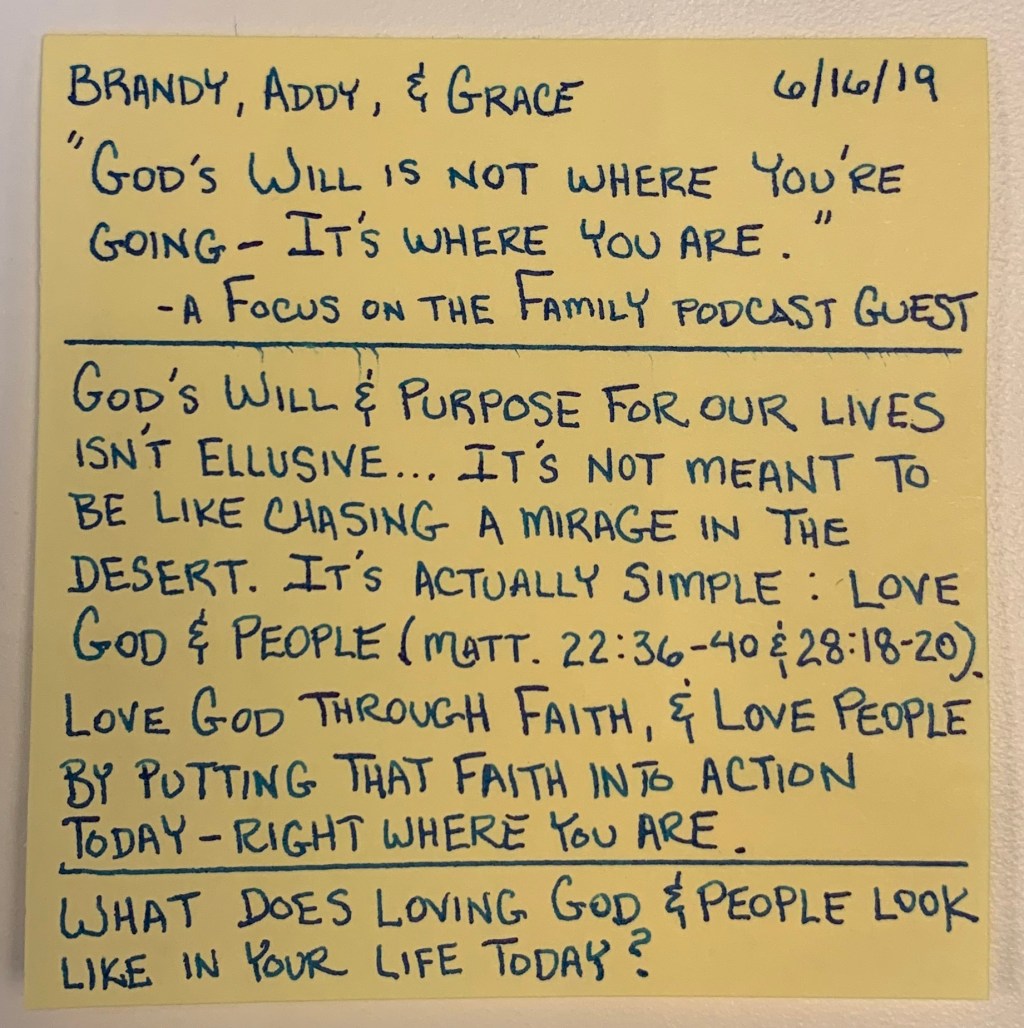 BRANDY, ADDY, & GRACE 6/16/19
"GOD'S WILL IS NOT WHERE YOU'RE
GOING - IT'S WHERE YOU ARE."
-A FOCUS ON THE FAMILY PODCAST GUEST
GOD'S WILL & PURPOSE FOR OUR LIVES
ISN'T ELLUSIVE... IT'S NOT MEANT TO
BE LIKE CHASING A MIRAGE IN THE
DESERT. IT'S ACTUALLY SIMPLE: LOVE
GOD & PEOPLE (MATT. 22:36-40 & 28:18-20).
LOVE GOD THROUGH FAITH, & LOVE PEOPLE
BY PUTTING THAT FAITH INTO ACTION
TODAY - RIGHT WHERE YOU ARE.
WHAT DOES LOVING GOD & PEOPLE LOOK
LIKE IN YOUR LIFE TODAY?